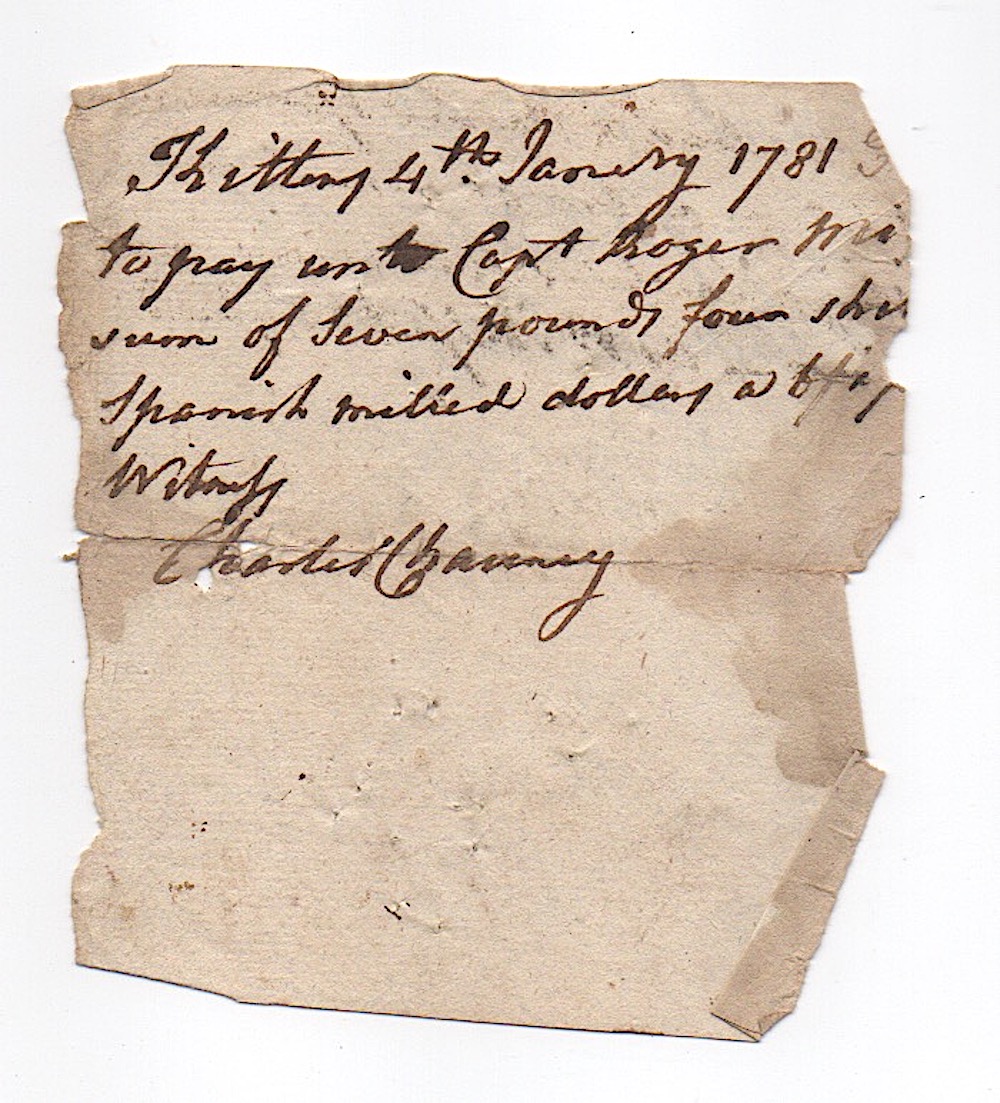 Kittery 4th Janury 1781
to pay unto Capt Roger Mi
sum of Seven pounds four shi
Spanish milled dollars a
Witness
Charles Chauncy